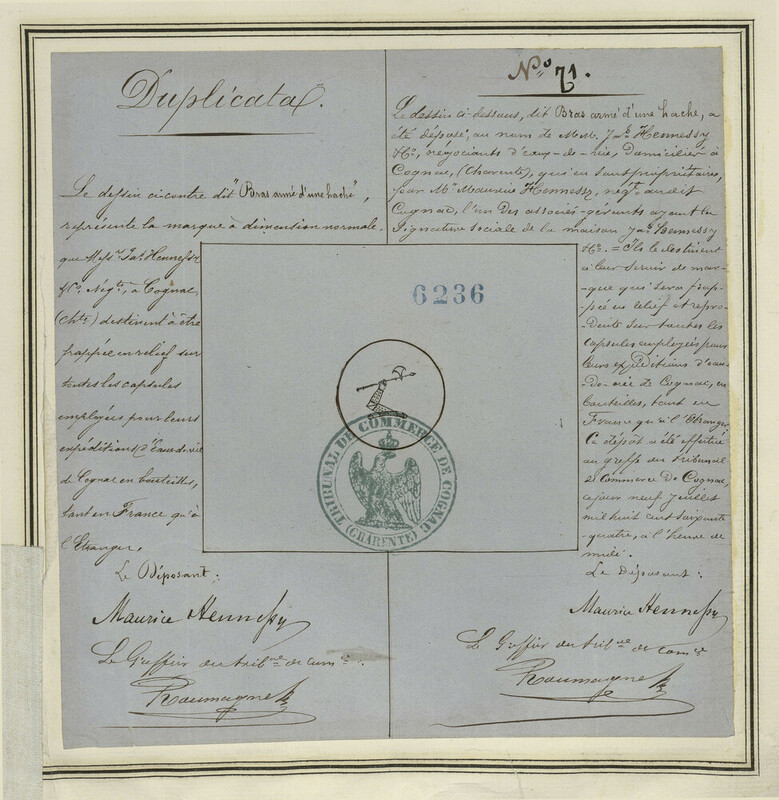 Duplicata.
Le dessin ci-contre dit "Bras armé d'une hache",
représente la marque à dimension normale,
que Mess.rs Ja.s Hennessy
& C.o Nég.ts, à Cognac,
(Ch.te) destinent à être
frappée en relief sur
toutes les capsules
employées pour leurs
expéditions d'Eaux-de-vie
de Cognac en bouteilles,
tant en France qu'à
l'Etranger.
Le Déposant:
Maurice Hennessy
Le Greffier du trib.al de com.ce
Roumagne
N.o 71.
Le dessin ci-dessous, dit Bras armé d'une hache, a
été déposé, au nom de MM. Ja.s Hennessy
& C.o, négociants d'eaux-de-vie, domiciliés à
Cognac, (Charente), qui en sont propriétaires,
par M.r Maurice Hennessy, nég.t audit
Cognac, l'un des associés-gérants ayant la
signature sociale de la maison Ja.s Hennessy
& C.o = Ils le destinent
à leur servir de mar-
-que qui sera frap-
-pée en relief et repro-
-duite sur toutes les
capsules employées pour
leurs expéditions d'eau-
-de-vie de Cognac, en
bouteilles, tant en
France qu'à l'Etranger.
Ce dépôt a été effectué
au greffe du Tribunal
de Commerce de Cognac,
ce jour neuf Juillet
mil huit cent soixante
quatre, à l'heure de
midi.
Le Déposant:
Maurice Hennessy
Le Greffier du trib.al de com.ce
Roumagne
6236
TRIBUNAL DE COMMERCE DE COGNAC
(CHARENTE)